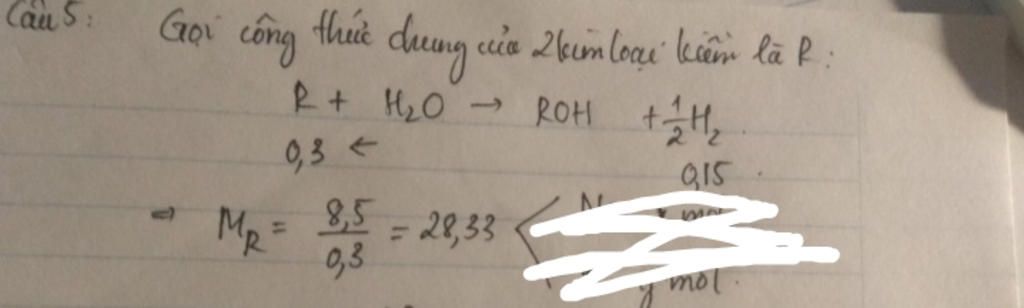 Câu 5: Gọi công thức chung của 2 kim loại kiềm là R:
R + H₂O → ROH + 1/2 H₂
0,3 ←
0,15
⇒ M_R = 8,5/0,3 = 28,33 <
y mol.